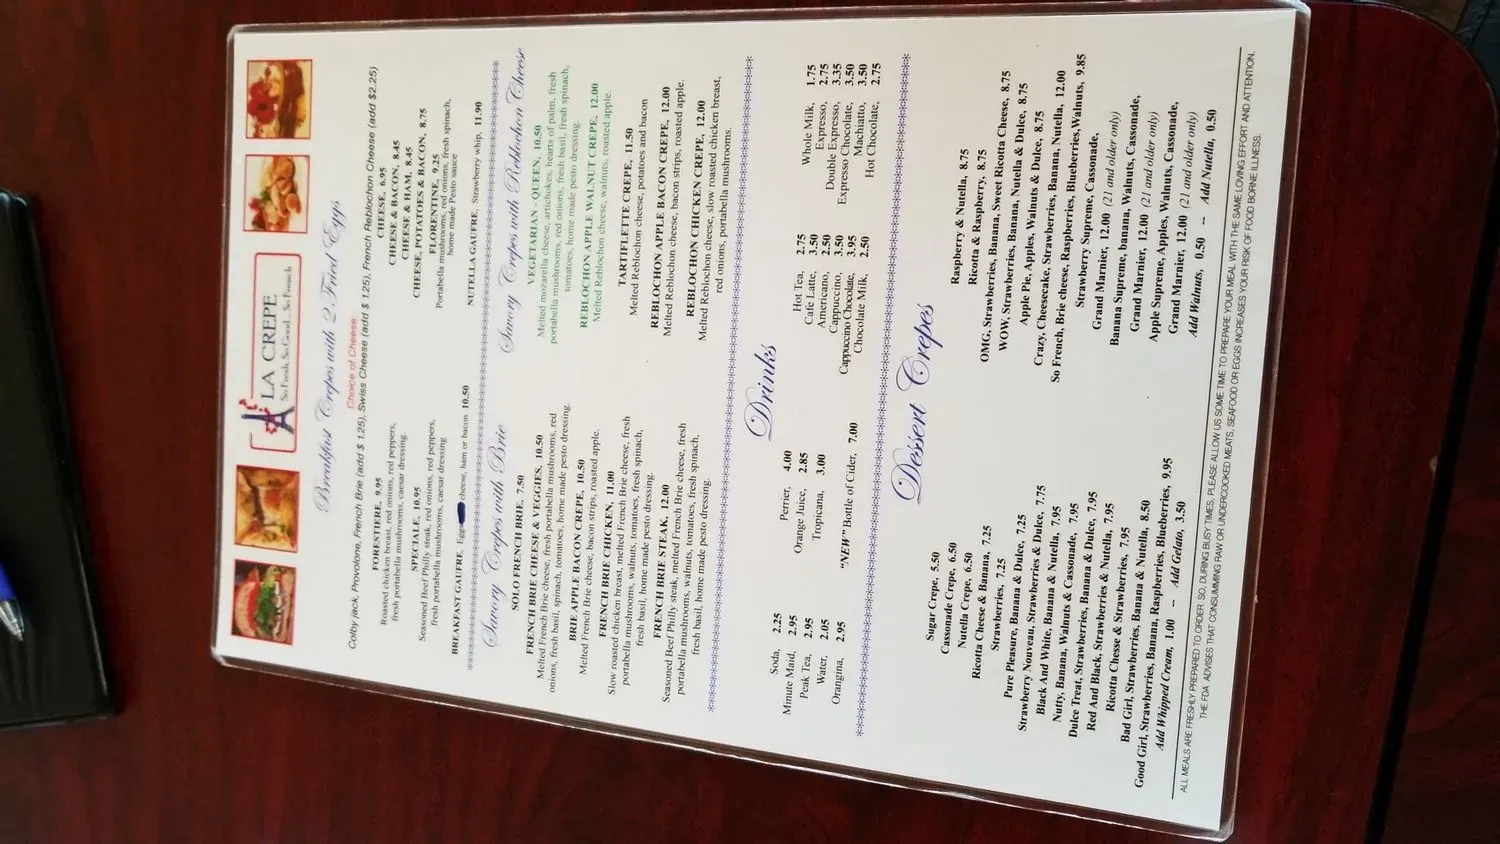 LA CREPE
So Fresh, So Good... So French
Breakfast Crepes with 2 Fried Eggs
Choice of Cheese
Colby jack, Provolone, French Brie (add $ 1.25), Swiss Cheese (add $ 1.25), French Reblochon Cheese (add $2.25)
FORESTIERE, 9.95
Roasted chicken breast, red onions, red peppers,
fresh portabella mushrooms, caesar dressing.
SPECIALE, 10.95
Seasoned Beef Philly steak, red onions, red peppers,
fresh portabella mushrooms, caesar dressing
BREAKFAST GAUFRE, Eggs cheese, ham or bacon 10.50
CHEESE, 6.95
CHEESE & BACON, 8.45
CHEESE & HAM, 8.45
CHEESE, POTATOES & BACON, 8.75
FLORENTINE, 9.25
Portabella mushrooms, red onions, fresh spinach,
home made Pesto sauce
NUTELLA GAUFRE, Strawberry whip, 11.90
Savory Crepes with Brie
SOLO FRENCH BRIE, 7.50
FRENCH BRIE CHEESE & VEGGIES, 10.50
Melted French Brie cheese, fresh portabella mushrooms, red
onions, fresh basil, spinach, tomatoes, home made pesto dressing.
BRIE APPLE BACON CREPE, 10.50
Melted French Brie cheese, bacon strips, roasted apple.
FRENCH BRIE CHICKEN, 11.00
Slow roasted chicken breast, melted French Brie cheese, fresh
portabella mushrooms, walnuts, tomatoes, fresh spinach,
fresh basil, home made pesto dressing.
FRENCH BRIE STEAK, 12.00
Seasoned Beef Philly steak, melted French Brie cheese, fresh
portabella mushrooms, walnuts, tomatoes, fresh spinach,
fresh basil, home made pesto dressing.
Savory Crepes with Reblochon Cheese
VEGETARIAN - QUEEN, 10.50
Melted mozarella cheese, artichokes, hearts of palm, fresh
portabella mushrooms, red onions, fresh basil, fresh spinach,
tomatoes, home made pesto dressing.
REBLOCHON, APPLE WALNUT CREPE, 12.00
Melted Reblochon cheese, walnuts, roasted apple.
TARTIFLETTE CREPE, 11.50
Melted Reblochon cheese, potatoes and bacon
REBLOCHON APPLE BACON CREPE, 12.00
Melted Reblochon cheese, bacon strips, roasted apple.
REBLOCHON CHICKEN CREPE, 12.00
Melted Reblochon cheese, slow roasted chicken breast,
red onions, portabella mushrooms.
Drinks
Soda, 2.25
Minute Maid, 2.95
Peak Tea, 2.95
Water, 2.05
Orangina, 2.95
Perrier, 4.00
Orange Juice, 2.85
Tropicana, 3.00
"NEW" Bottle of Cider, 7.00
Hot Tea, 2.75
Cafe Latte, 3.50
Americano, 2.50
Cappuccino, 3.50
Cappuccino Chocolate, 3.95
Chocolate Milk, 2.50
Whole Milk, 1.75
Expresso, 2.75
Double Expresso, 3.35
Expresso Chocolate, 3.50
Machiatto, 3.50
Hot Chocolate, 2.75
Dessert Crepes
Sugar Crepe, 5.50
Cassonade Crepe, 6.50
Nutella Crepe, 6.50
Ricotta Cheese & Banana, 7.25
Strawberries, 7.25
Pure Pleasure, Banana & Dulce, 7.25
Strawberry Nouveau, Strawberries & Dulce, 7.75
Black And White, Banana & Nutella, 7.95
Nutty, Banana, Walnuts & Cassonade, 7.95
Dulce Treat, Strawberries, Banana & Dulce, 7.95
Red And Black, Strawberries & Nutella, 7.95
Ricotta Chesse & Strawberries, 7.95
Bad Girl, Strawberries, Banana & Nutella, 8.50
Good Girl, Strawberries, Banana, Raspberries, Blueberries, 9.95
Add Whipped Cream, 1.00 -- Add Gelato, 3.50
Raspberry & Nutella, 8.75
Ricotta & Raspberry, 8.75
OMG, Strawberries, Banana, Sweet Ricotta Cheese, 8.75
WOW, Strawberries, Banana, Nutella & Dulce, 8.75
Apple Pie, Apples, Walnuts & Dulce, 8.75
Crazy, Cheesecake, Strawberries, Banana, Nutella, 12.00
So French, Brie cheese, Raspberries, Blueberries, Walnuts, 9.85
Strawberry Supreme, Cassonade,
Grand Marnier, 12.00 (21 and older only)
Banana Supreme, banana, Walnuts, Cassonade,
Grand Marnier, 12.00 (21 and older only)
Apple Supreme, Apples, Walnuts, Cassonade,
Grand Marnier, 12.00 (21 and older only)
Add Walnuts, 0.50 -- Add Nutella, 0.50
ALL MEALS ARE FRESHLY PREPARED TO ORDER. SO, DURING BUSY TIMES, PLEASE ALLOW US SOME TIME TO PREPARE YOUR MEAL WITH THE SAME LOVING EFFORT AND ATTENTION.
THE FDA ADVISES THAT CONSUMING RAW OR UNDERCOOKED MEATS, SEAFOOD OR EGGS INCREASES YOUR RISK OF FOOD BORNE ILLNESS.